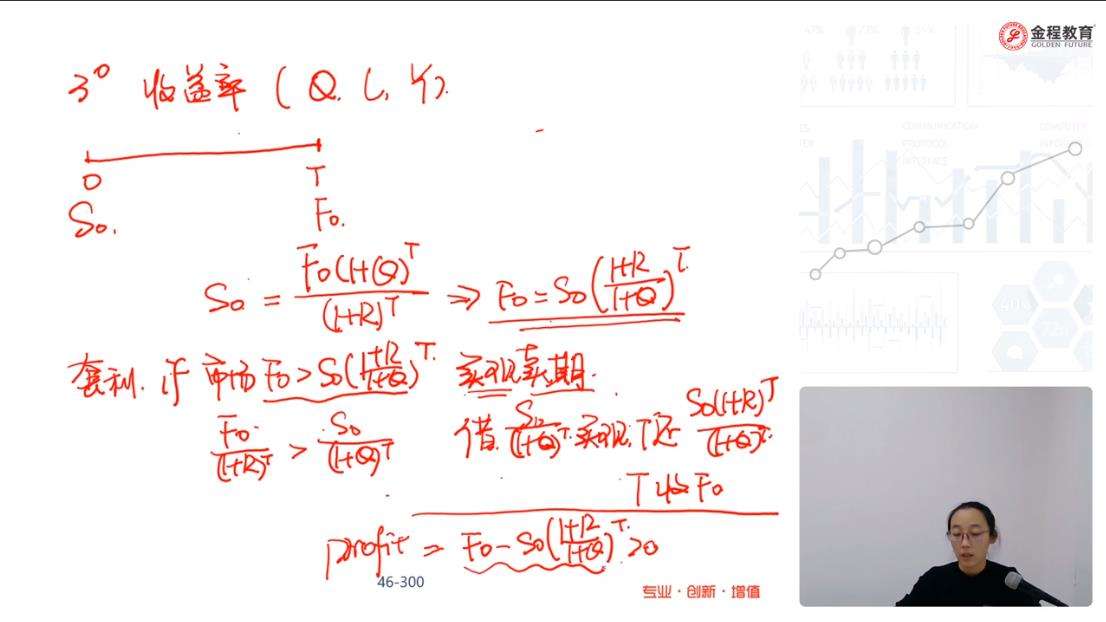 金程教育
GOLDEN FUTURE
3° 收益率 ( Q, L, Y).
0 T
S0. F0.
S0 = F0(1+Q)^T / (1+R)^T ⇒ F0 = S0 ( (1+R) / (1+Q) )^T
套利. if 市场 F0 > S0 ( (1+R) / (1+Q) )^T 买现卖期.
F0 / (1+R)^T > S0 / (1+Q)^T 借 S0 / (1+Q)^T 买现, T还 S0(1+R)^T / (1+Q)^T
T收F0
profit = F0 - S0 ( (1+R) / (1+Q) )^T >0
46-300
专业·创新·增值